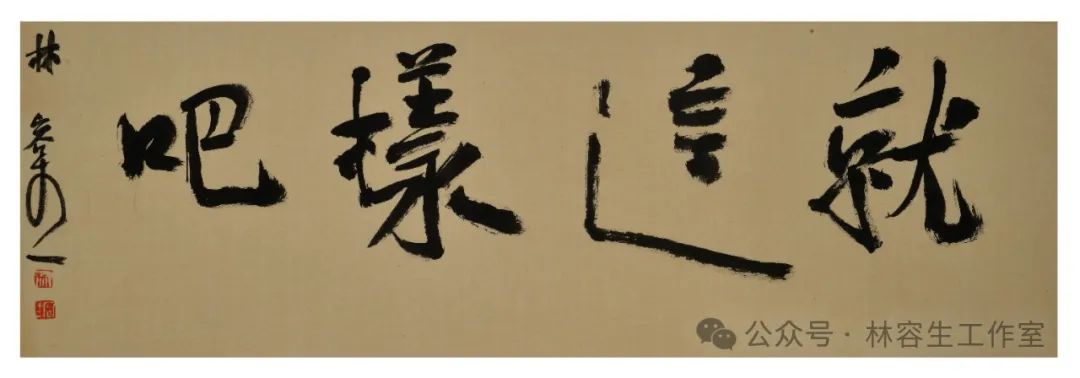 就這樣吧
林容生
公众号·林容生工作室